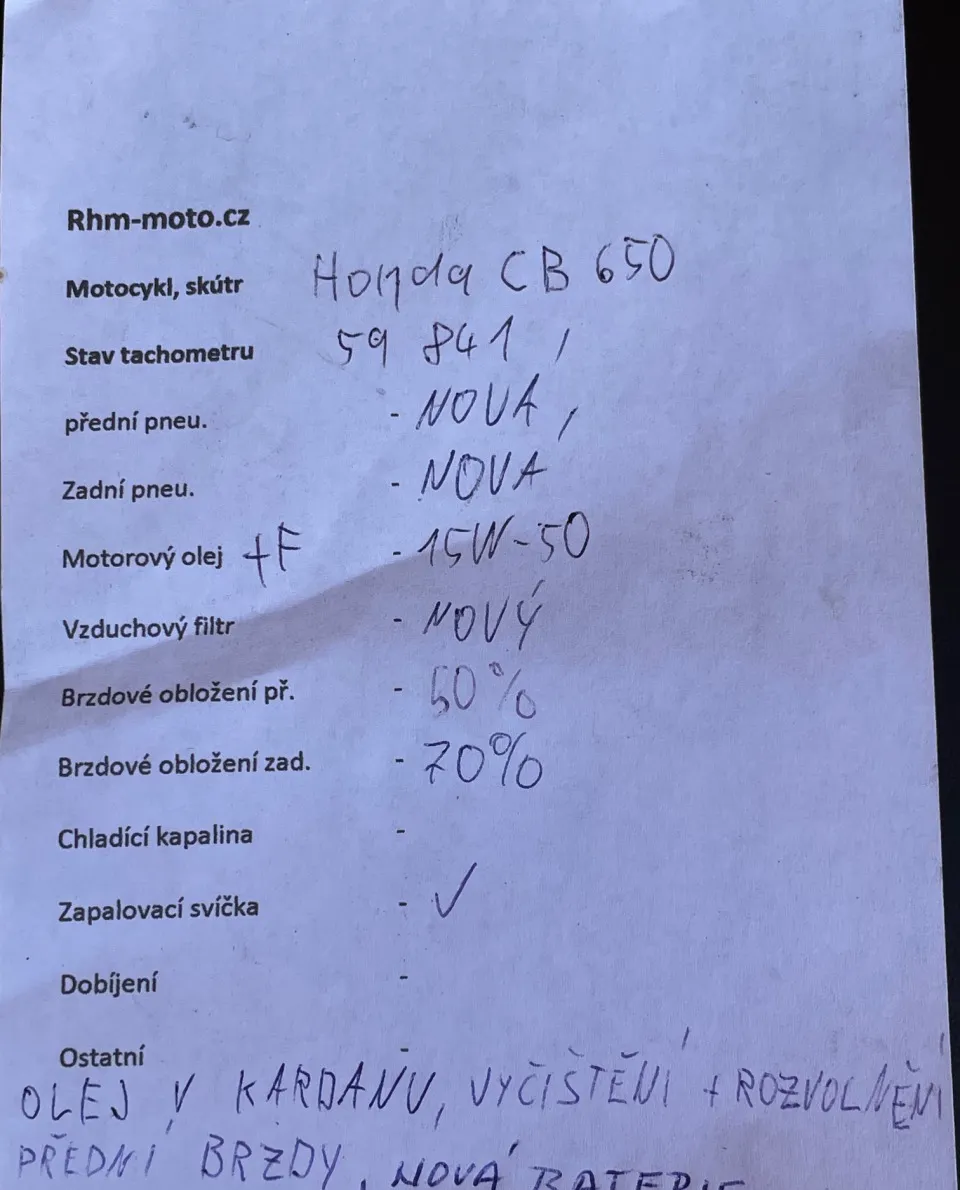 Rhm-moto.cz
Motocykl, skútr Honda CB 650
Stav tachometru 59 841 ,
přední pneu. - NOVA ,
Zadní pneu. - NOVA
Motorový olej +F - 15W-50
Vzduchový filtr - NOVÝ
Brzdové obložení př. - 50%
Brzdové obložení zad. - 70%
Chladící kapalina -
Zapalovací svíčka - ✓
Dobíjení -
Ostatní -
OLEJ V KARDANU, VYČIŠTĚNÍ + ROZVOLNĚNÍ
PŘEDNI BRZDY, NOVÁ BATERIE